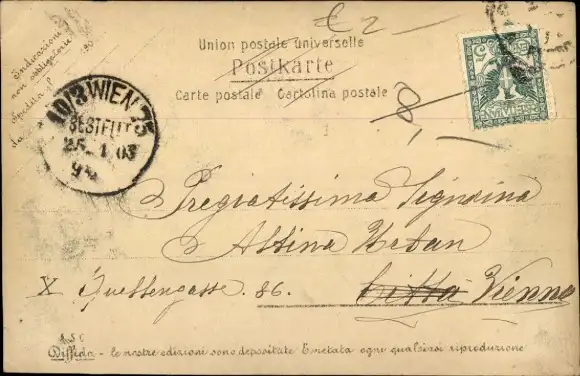 £ 2-
Indicazioni
non obbligatorie
Union postale universelle
Postkarte
Carte postale Cartolina postale
8,-
10/3 WIEN 75
BESTELLT
25. 1. 03
Pregiatissima Signorina
Altina Urban
X Quellengasse. 86. Città Vienna
A.S.C
Diffida - le nostre edizioni sono depositate E vietata ogni qualsiasi riproduzione